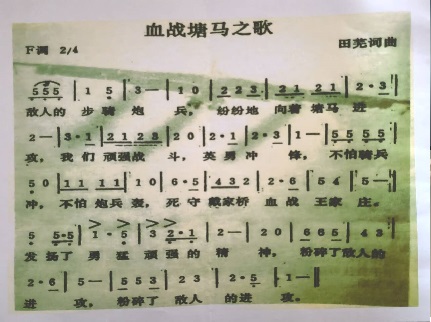 血战塘马之歌
F调 2/4 田芜词曲
5 5 5 | 1 5 | 3 — | 1 0 | 2 2 2 3 | 2 1 2 1 | 2 · 3 |
敌人的 步骑 炮 兵, 纷纷地 向着 塘马 进
2 — | 3 · 1 | 2 1 2 3 | 2 0 | 2 · 1 | 2 · 3 | 1 — | 5 5 5 5 |
攻, 我们 顽强战 斗, 英勇 冲 锋, 不怕骑兵
5 0 | 1 1 1 1 | 1 0 | 6 · 5 | 4 3 2 | 2 · 6 | 5 4 | 5 — |
冲, 不怕 炮兵 轰, 死守 戴家桥 血战 王家 庄。
5 5 · 5 | 1 · 5 | 3 2 · 1 | 2 — | 3 — | 2 0 | 6 6 5 | 4 3 |
发扬了 勇猛 顽强的 精 神, 粉碎了敌人的
2 · 6 | 5 — | 5 5 3 | 2 3 | 2 · 5 | 1 — |
进 攻, 粉碎了 敌人 的进 攻。